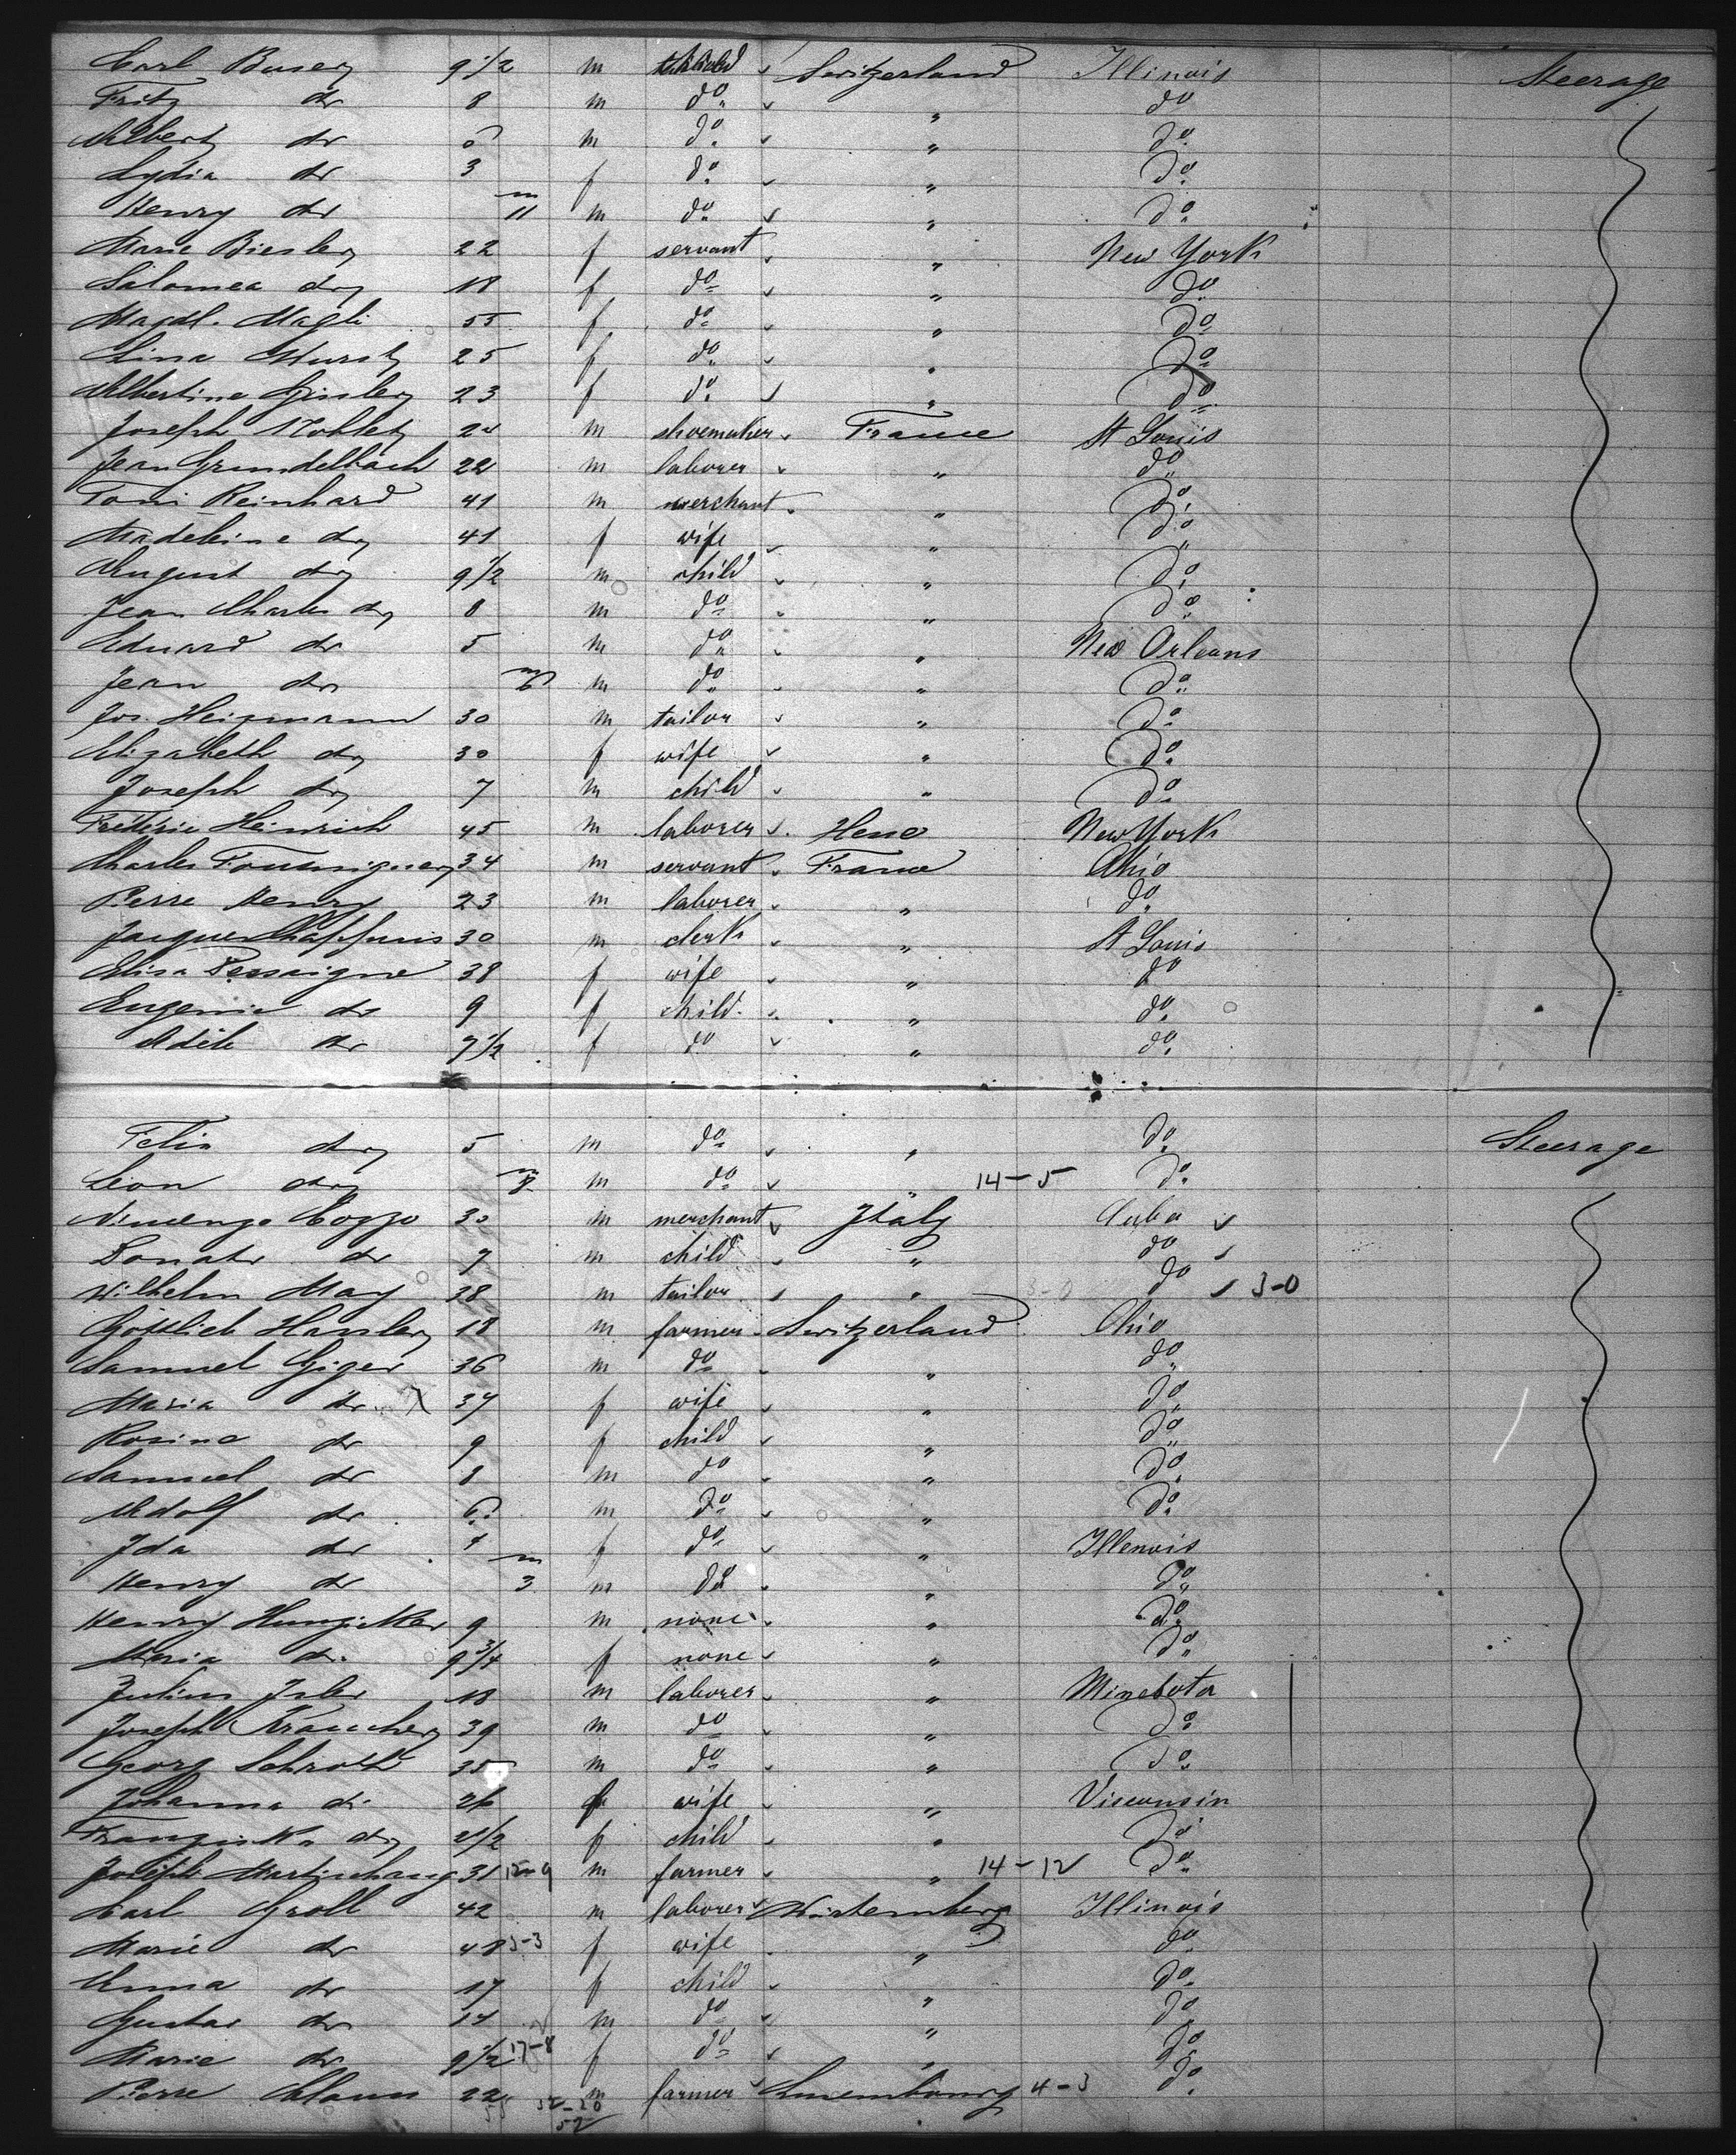 Carl Buser 9 1/2 m child Switzerland Illinois Steerage
Fritz do 8 m do " do
Albert do m do " do
Lydia do 3 f do " do
Henry do m 11 m do " do
Marie Biesler 22 f servant " New York
Salomea do 18 f do " do
Magdl. Magli 55 f do " do
Lina Wurst 25 f do " do
Albertine Gissler 23 f do " do
Joseph Noblet m shoemaker France St Louis
Jean Grundelbach 22 m laborer " do
Toni Reinhard 41 m merchant " do
Madeleine do 41 f wife " do
August do 9 1/2 m child " do
Jean Charles do 8 m do " do
Eduard do 5 m do " New Orleans
Jean do m 6 m do " do
Jos. Heizmann 30 m tailor " do
Elizabeth do 30 f wife " do
Joseph do 7 m child " do
Fréderic Heinrich 45 m laborer Hesse New York
Charles 34 m servant France Ohio
Pierre Henry 23 m laborer " do
Jacques Chappuis 30 m clerk " St Louis
Elisa Dessaigne 38 f wife " do
Eugenie do 9 f child " do
Adèle do 7 1/2 f do " do
Felix do 5 m do " do Steerage
Leon do m m do " 14-5 do
Vincenzo Cozzo 30 m merchant Italy Cuba
Donato do 7 m child " do
Wilhelm May 38 m tailor " 3-0 do 3-0
Gottlieb Hassler 18 m farmer Switzerland Ohio
Samuel Giger 36 m do " do
Maria do X 37 f wife " do
Rosina do 9 f child " do
Samuel do 8 m do " do
Adolf do 6 m do " do
Ida do 4 f do " Illenois
Henry do m 3 m do " do
Henry Hunziker 9 m none " do
Maria do 9 3/4 f none " do
Julius Isler 18 m laborer " Minesota
Joseph Kraucher 39 m do " do
Georg Schroth 35 m do " do
Johanna do 26 f wife " Visconsin
Franziska do 2 1/2 f child " do
Joseph Martischang 31 15-9 m farmer " 14-12 do
Carl Groll 42 m laborer Würtemberg Illinois
Marie do 48 5-3 f wife " do
Anna do 17 f child " do
Gustav do 14 m do " do
Marie do 9 1/2 17-8 f do " do
Pierre Claus 22 m farmer Luxembourg 4-3 do
32-20
52